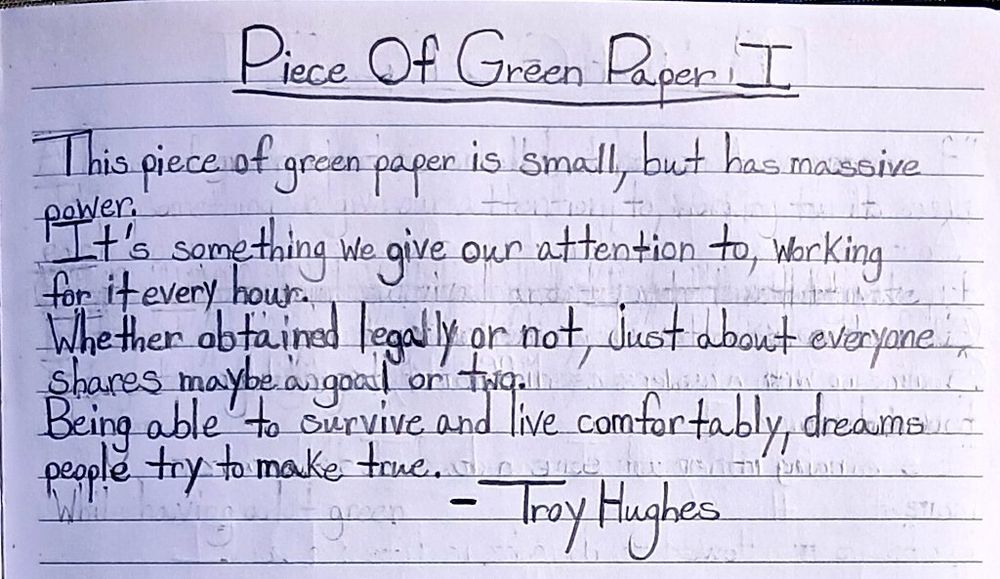 Piece Of Green Paper I
This piece of green paper is small, but has massive
power.
It's something we give our attention to, working
for it every hour.
Whether obtained legally or not, just about everyone
shares maybe a goal or two.
Being able to survive and live comfortably, dreams
people try to make true.
- Troy Hughes